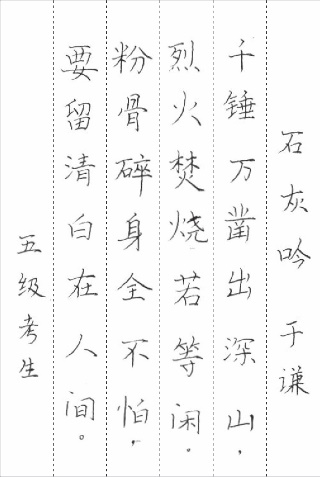 石灰吟 于谦
千锤万凿出深山，
烈火焚烧若等闲。
粉骨碎身全不怕，
要留清白在人间。
五级考生